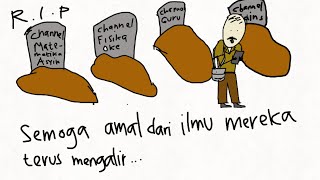 R.I.P
channel
Mate-
matika
Asyik
channel
Fisika
Oke
channel
Guru
channel
Semoga amal dari ilmu mereka
terus mengalir...